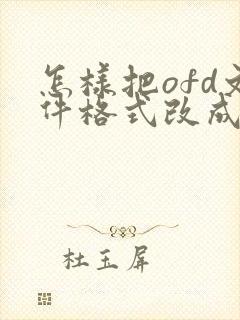 怎樣把ofd文
件格式改成
杜玉屏